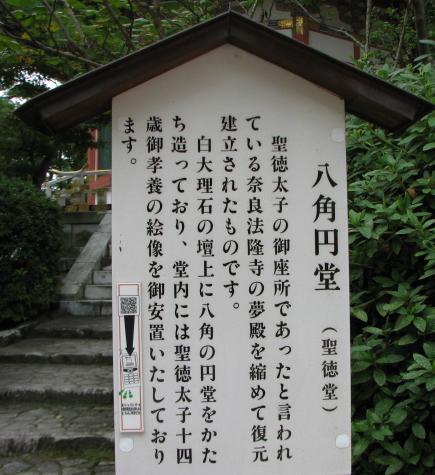 八角円堂
(聖徳堂)
聖徳太子の御座所であったと言われ
ている奈良法隆寺の夢殿を縮めて復元
建立されたものです。
白大理石の壇上に八角の円堂をかた
ち造っており、堂内には聖徳太子十四
歳御孝養の絵像を御安置いたしており
ます。